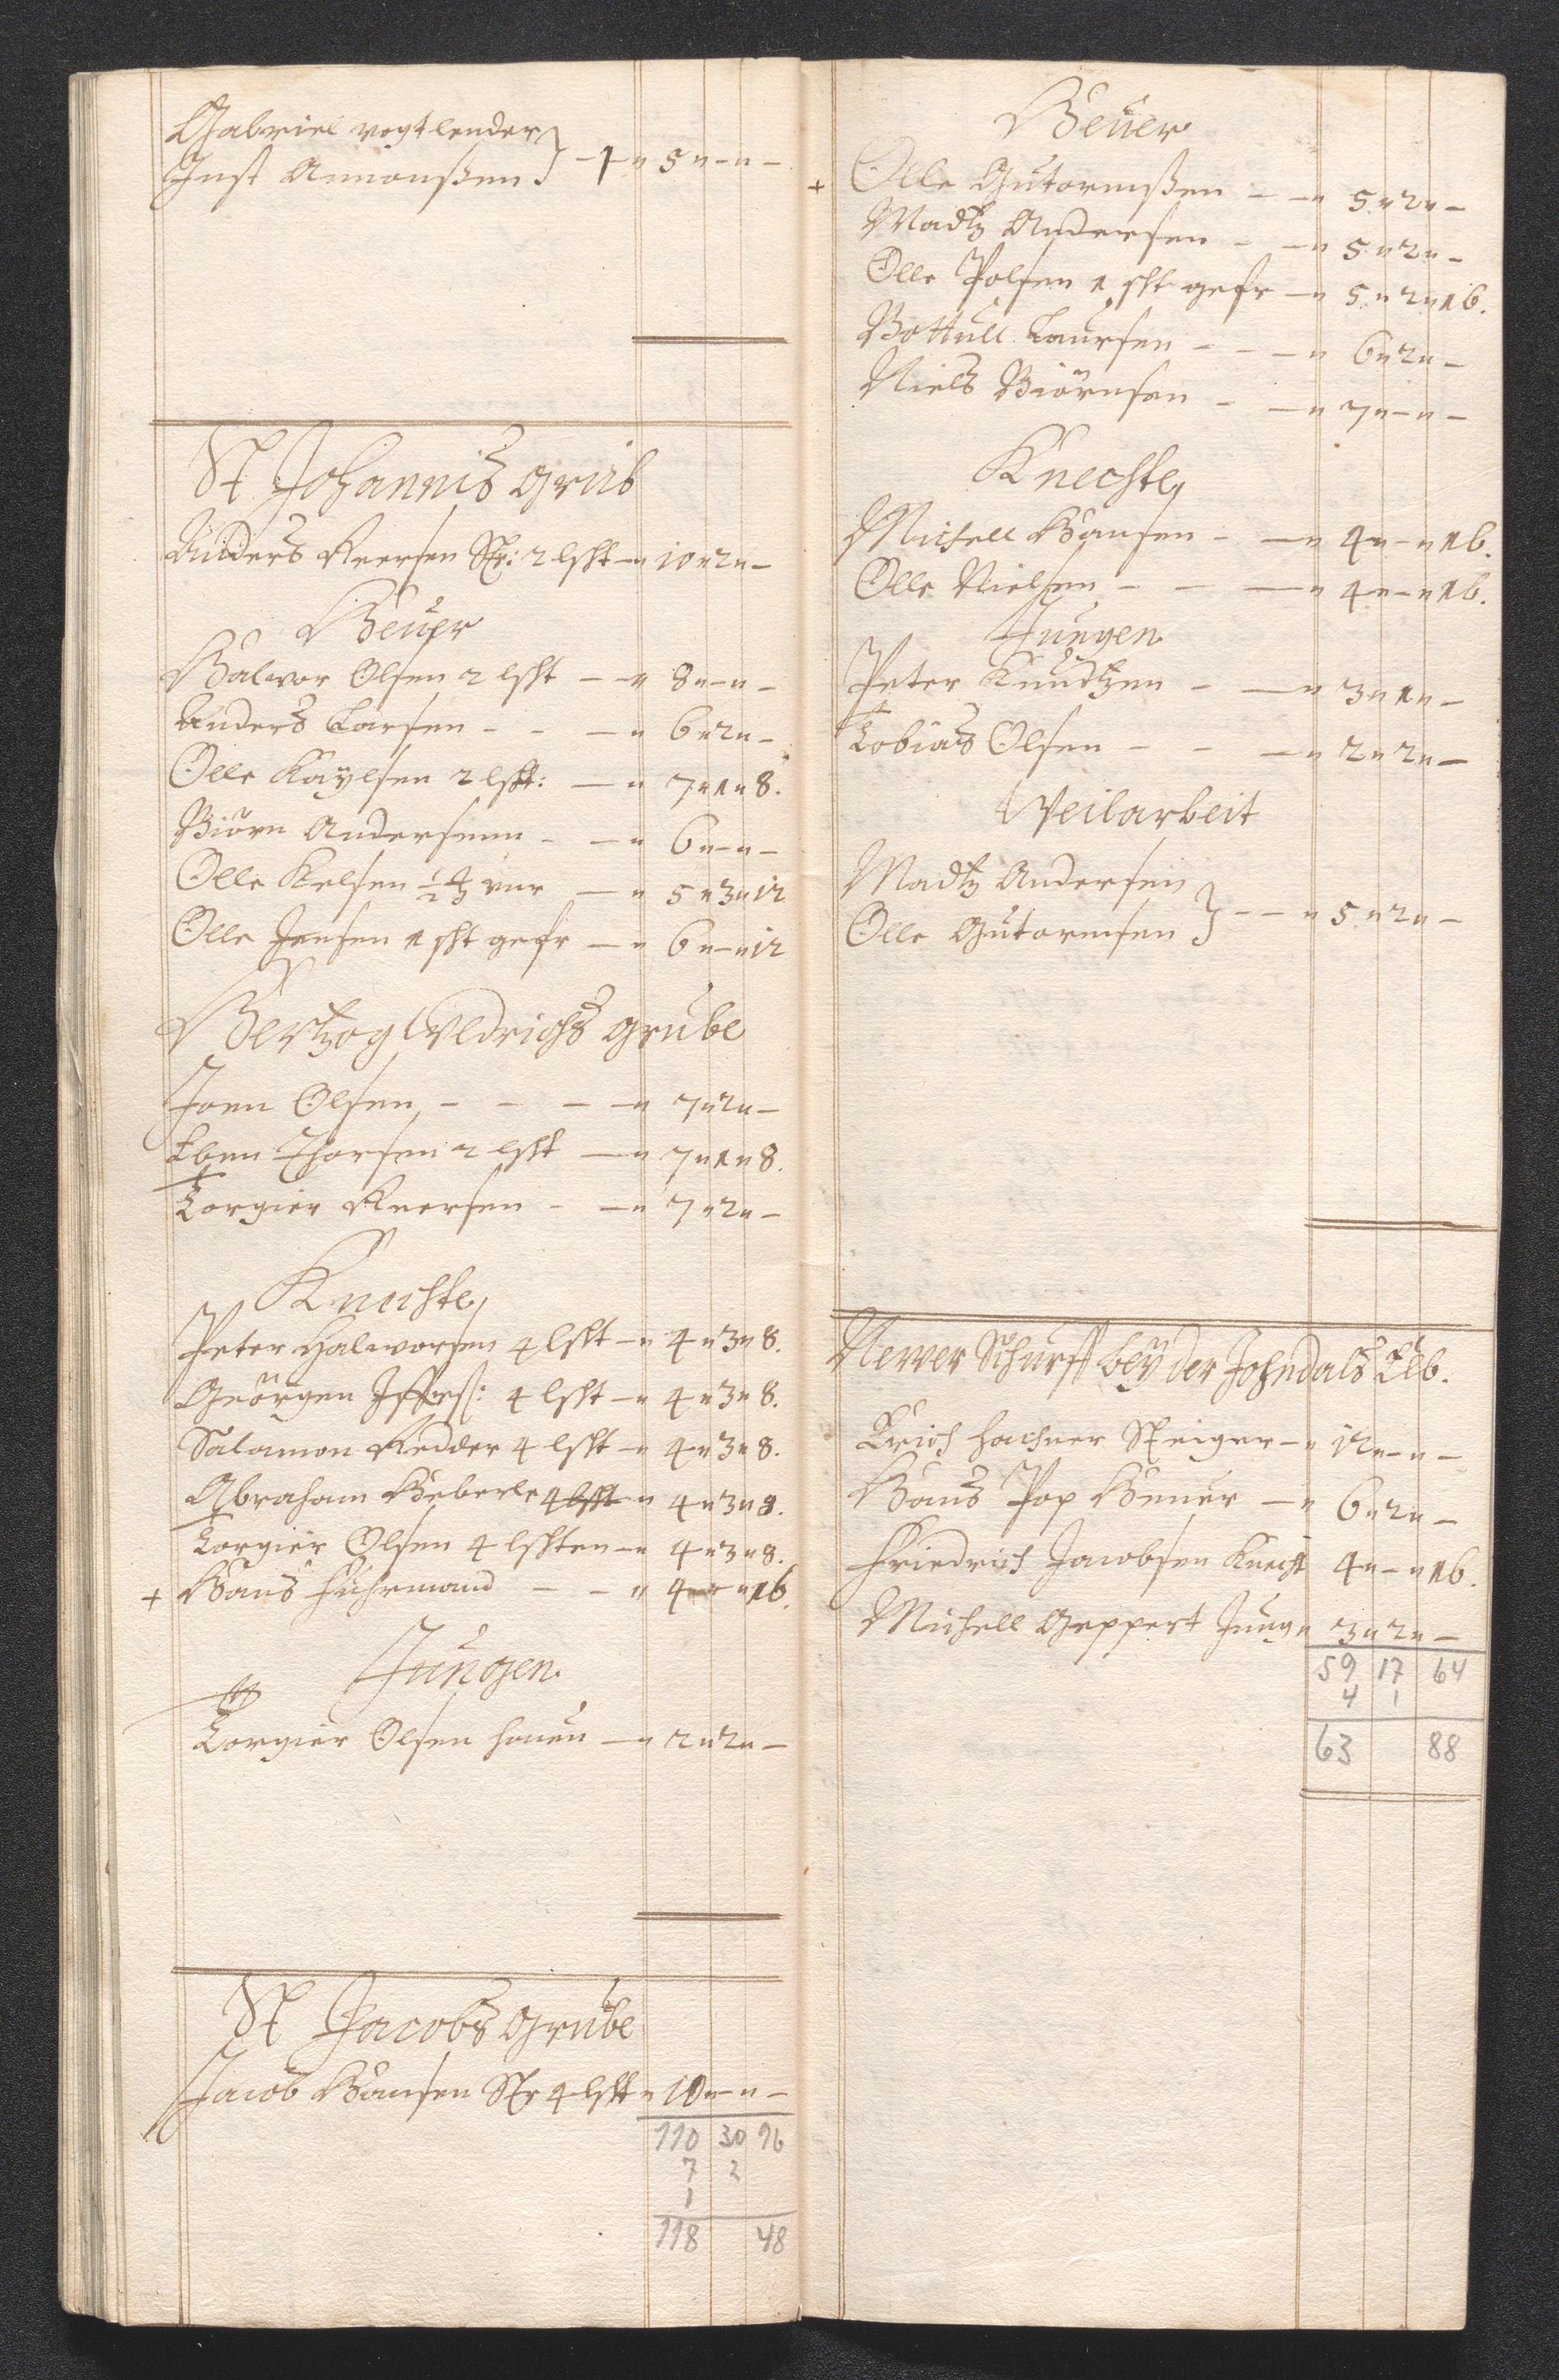 Gabriel vogtlender
Just Amonßen } – 1 " 5 " – " –
St Johannis grüb
Anders Knersen Str: 2 lsht – " 10 " 2 " –
Heüer
Halvor Olsen 2 lsht – " 8 " – " –
Anders Larsen – – " 6 " 2 " –
Olle Kaÿlsen 2 lsht: – " 7 " 1 " 8.
Biörn Andersenn – – " 6 " – " –
Olle Kelsen – " 5 " 3 " 12
Olle Jensen 1 sht gefr – " 6 " – " 12
Hertzog Uldrichs grube
Joen Olsen – – – " 7 " 2 " –
Eben Thorsen 2 lsht – " 7 " 1 " 8.
Torgier Knersen – – " 7 " 2 " –
Knechte
Peter Halvorsen 4 lsht – " 4 " 3 " 8.
Geörgen 4 lsht – " 4 " 3 " 8.
Salamon Redder 4 lsht – " 4 " 3 " 8.
Abraham Heberle 4 lsht " 4 " 3 " 8.
Torgier Olsen 4 lshten – " 4 " 3 " 8.
+ Hans Fuhrmand – – " 4 " – " 16.
Jungen
Torgier Olsen hauen – " 2 " 2 " –
St Jacobs Grube
Jacob Hansen Str 4 lsht " 10 " – " –
110 30 96
7 2
1
118 48
Heüer
+ Olle Gutormßen – – " 5 " 2 " –
Madtz Andersen – – " 5 " 2 " –
Olle Polsen 1 sht gefr – " 5 " 2 " 16.
Bottull Laursen – – – " 6 " 2 " –
Niels Biörnsen – – " 7 " – " –
Knechte
Michell Hansen – – " 4 " – " 16.
Olle Nielsen – – – " 4 " – " 16.
Jungen
Peter Knudtzen – – " 3 " 1 " –
Tobias Olsen – – – " 2 " 2 " –
Weilarbeit
Madtz Andersen
Olle Gutormsen } – – " 5 " 2 " –
Newer Schurff beÿ der Johndals Elb.
Erich hachner Steiger – " 12 " – " –
Hans Pop Heuer – " 6 " 2 " –
Friedrich Jacobsen Knecht 4 " – " 16.
Michell Geppert Jung " 3 " 2 " –
59 17 64
4 1
63 88